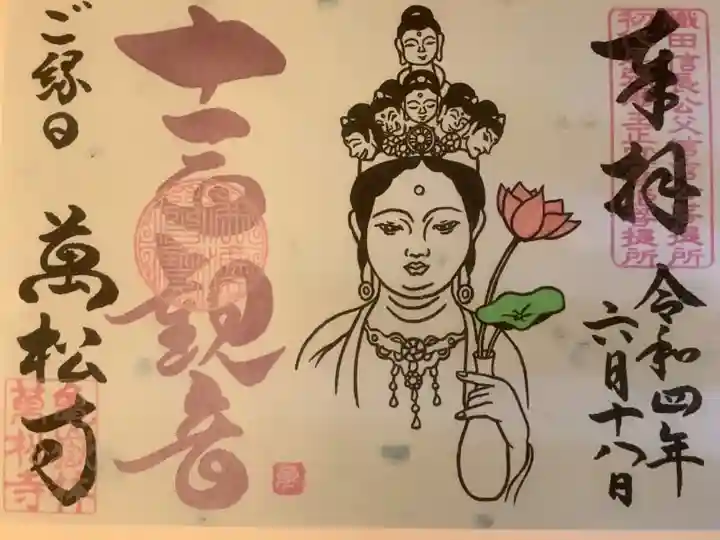 奉拝
織田信長公父信秀公菩提所
令和四年
六月十八日
十一面観音
ご縁日
萬松寺
亀嶽林
萬松寺